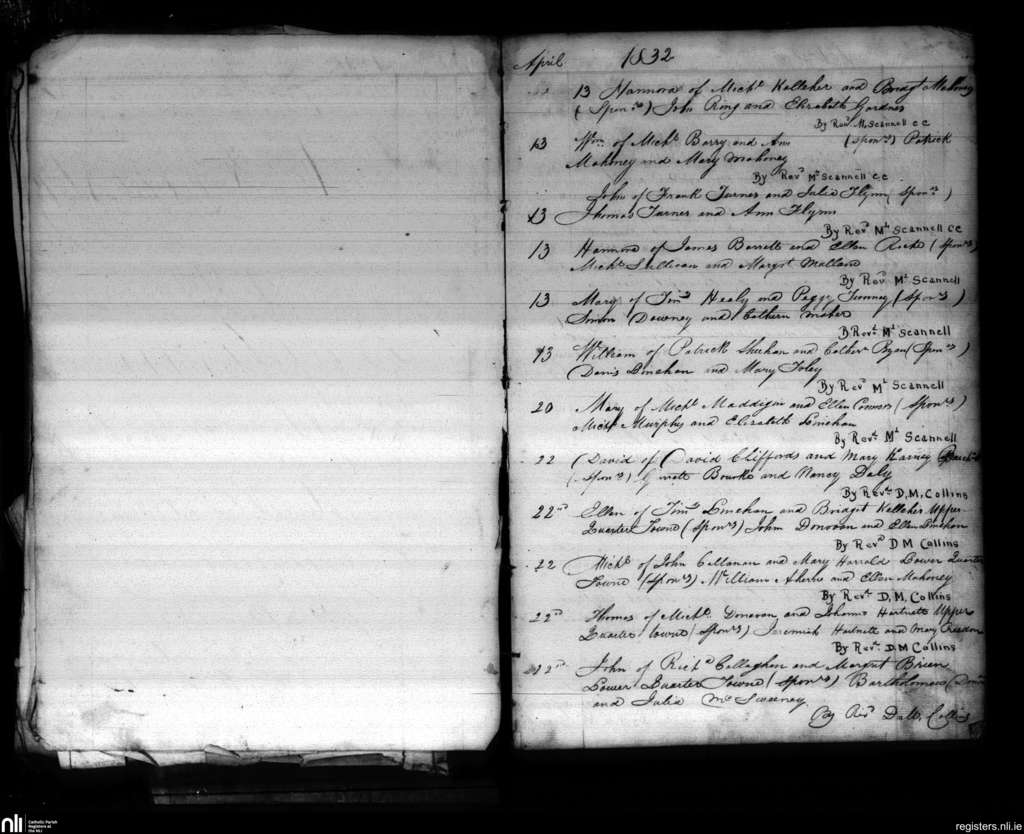 April 1832
13 Hannora of Mich.l Kelleher and Bridgt Mahoney
(Spon.rs) John Ring and Elizabeth Gardner
By Rev.d M. Scannell C C
13 Wm. of Mich.l Barry and Ann (Spon.rs) Patrick
Mahoney and Mary Mahoney
By Rev.d M.l Scannell C.C.
John of Frank Turner and Julia Flynn (Spon.rs)
13 Thomas Turner and Ann Flynn
By Rev.d M.l Scannell CC
13 Hannora of James Barrett and Ellen (Spon.rs)
Mich.l Sullivan and Margrt
By Rev.d M.l Scannell
13 Mary of Tim.y Healy and Peggy (Spon.rs)
Simon Downey and Cathern
B Rev.d M.l Scannell
13 William of Patrick Sheehan and Cather. Ryan (Spon.rs)
Denis Linehan and Mary Foley
By Rev.d M.l Scannell
20 Mary of Mich.l Maddigin and Ellen Connors (Spon.rs)
Mich.l Murphy and Elizabeth Linehan
By Rev.d M.l Scannell
22 David of David Cliffords and Mary
(Spon.rs) Bourke and Nancy Daly
By Rev.d D, M, Collins
22nd Ellen of Tim.y Linehan and Bridget Kelleher Upper
Quarter Town (Spon.rs) John Donovan and Ellen Linehan
By Rev.d D M Collins
22 Mich.l of John Callanan and Mary Harrold Lower Quarter
Towne (Spon.rs) William Aherne and Ellen Mahoney
By Rev.d D, M, Collins
22nd Thomas of Mich.l Donovan and Johanna Hartnett Upper
Quarter towne (Spon.rs) Jeremiah Hartnett and Mary
By Rev.d D. M Collins
22nd John of Rich.d Callaghan and Margret Brien
Lower Quarter Towne (Spon.rs) Bartholomew
and Julia Mc Sweeney.
By Rev.d Collins
nli
Catholic Parish
Registers at
the NLI
registers.nli.ie